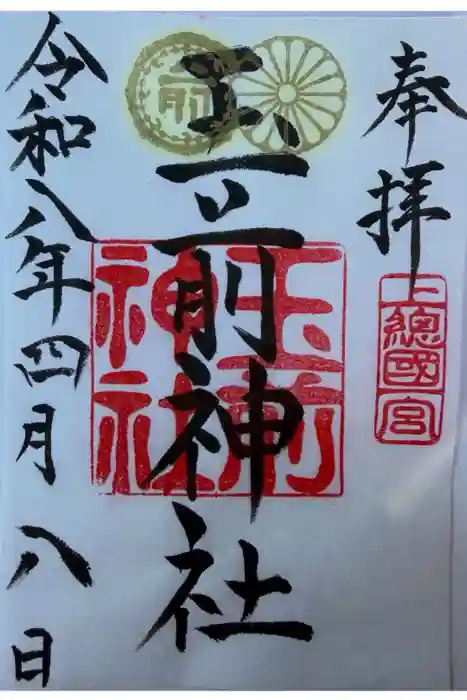 奉拝
上總國
一宮
玉前神社
玉前
神社
前
令和八年四月八日